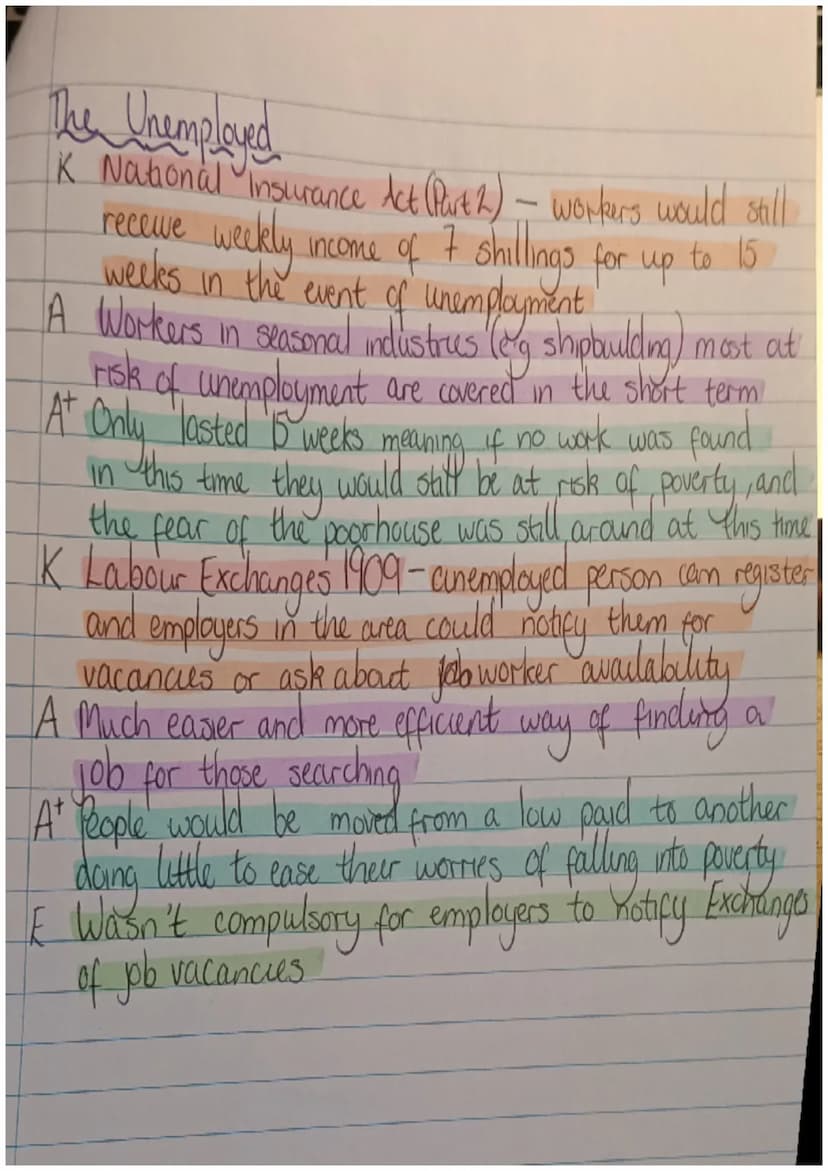 The Unemployed
K National Insurance Act (Part 2) – workers would still
receive weekly income of 7 shillings for up to 15
weeks in the event of unemployment
A Workers in seasonal industries (e.g shipbuilding) most at
risk of unemployment are covered in the short term
A+ Only lasted 15 weeks meaning if no work was found
in this time they would still be at risk of poverty, and
the fear of the poorhouse was still around at this time
K Labour Exchanges 1909 – unemployed person can register
and employers in the area could notify them for
vacancies or ask about job worker availability
A Much easier and more efficient way of finding a
job for those searching
A+ People would be moved from a low paid to another
doing little to ease their worries of falling into poverty
E Wasn't compulsory for employers to notify Exchanges
of job vacancies